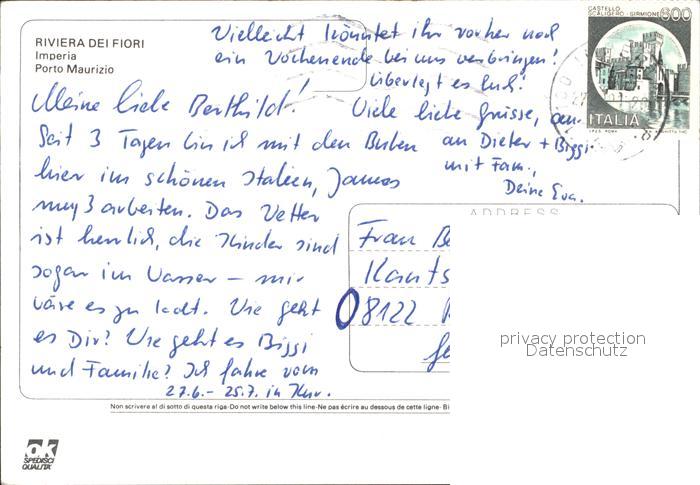 RIVIERA DEI FIORI
Imperia
Porto Maurizio
CASTELLO
SCALIGERO - SIRMIONE
600
ITALIA
Meine liebe Berthild!
Seit 3 Tagen bin ich mit den Buben
hier im schönen Italien, James
muß arbeiten. Das Wetter
ist herrlich, die Kinder sind
sogar im Wasser – mir
wäre es zu kalt. Wie geht
es Dir? Wie geht es Biggi
und Familie? Ich fahre vom
27.6. – 25.7. in
Vielleicht könntet ihr vorher noch
ein Wochenende bei uns verbringen!
Überlegt es Euch!
Viele liebe Grüsse, auch
an Dieter + Biggi
mit Fam.,
Deine Eva.
ADDRESS
Frau Be
Kants
8122
privacy protection
Datenschutz
Non scrivere al di sotto di questa riga-Do not write below this line-Ne pas écrire au dessous de cette ligne-Bi
ok
SPEDISCI
QUALITA'